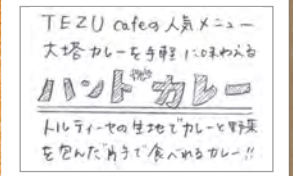 TEZU cafeの人気メニュー
大塔カレーを手軽に味わえる
ハンドdeカレー
トルティーヤの生地でカレーと野菜
を包んだ片手で食べれるカレー!!